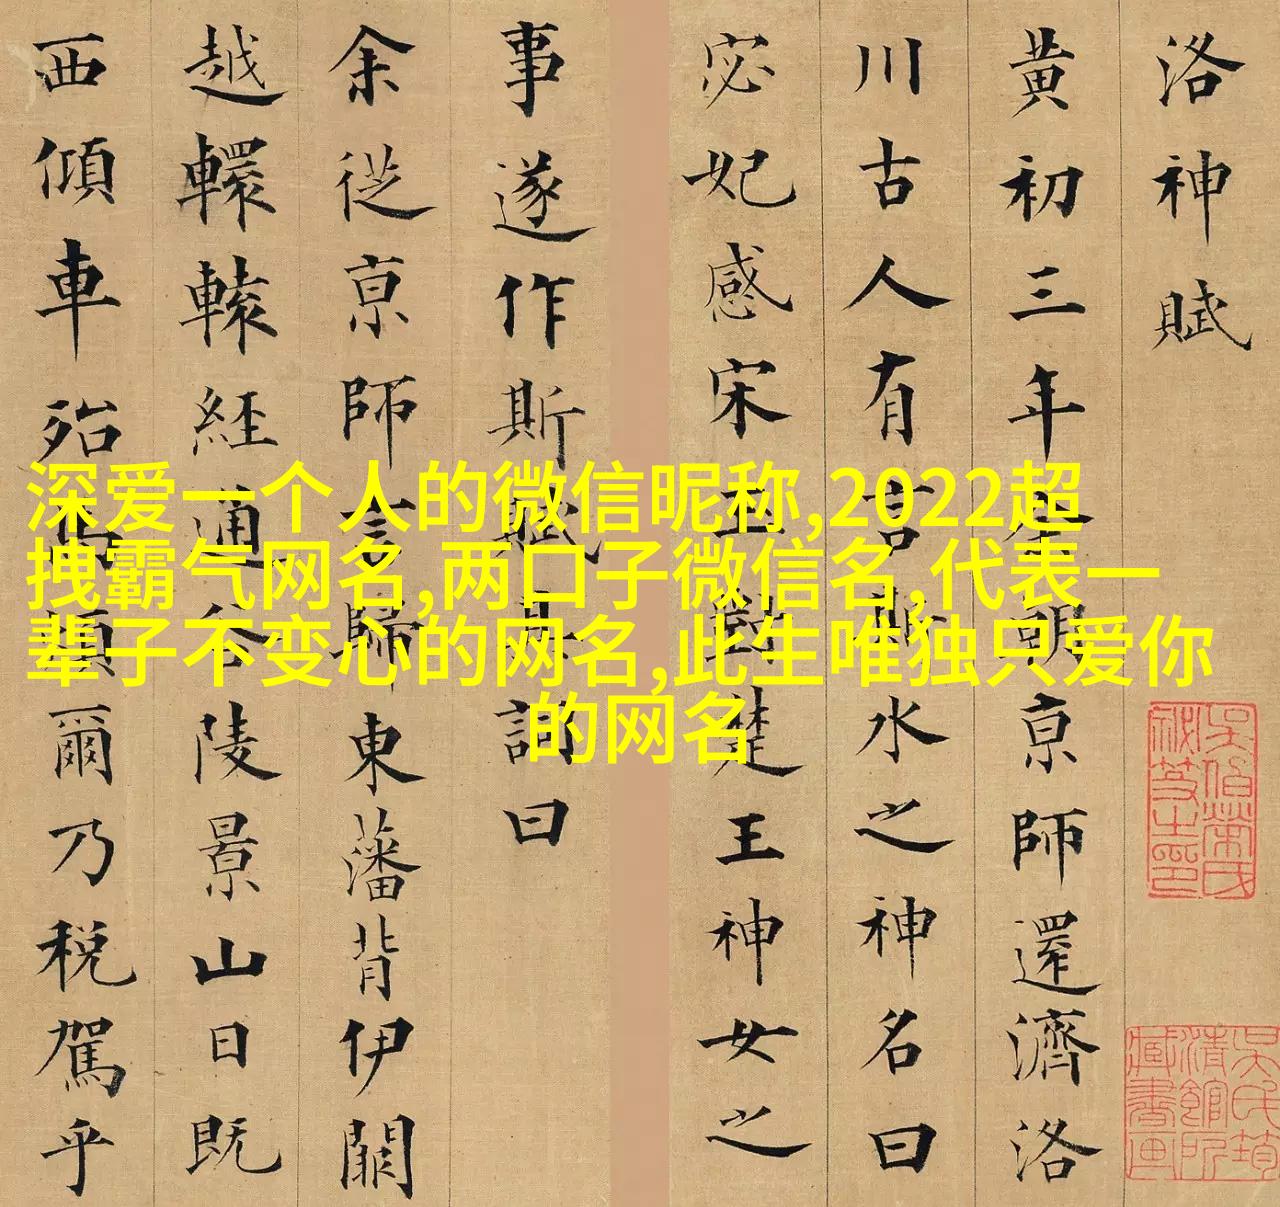 洛神賦
黄初三年余朝京師還濟洛
川古人有言斯水之神名曰
宓妃感宋玉對楚王神女之
事遂作斯賦其詞曰
余從京師言歸東藩背伊闕
越轘轅經通谷陵景山日既
西傾車殆馬煩爾乃税駕乎
深爱一个人的微信昵称,2022超
拽霸气网名,两口子微信名,代表一
辈子不变心的网名,此生唯独只爱你
的网名
吳氏筠
清館所
藏書畫